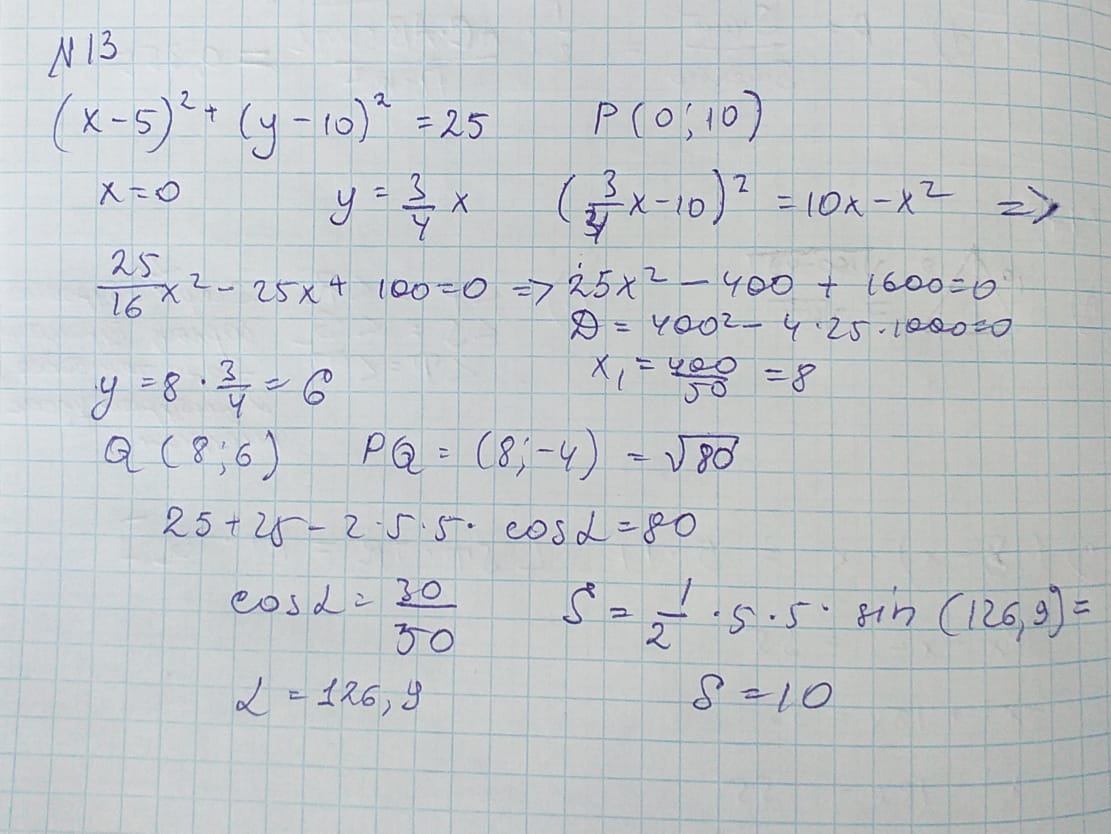 N 13
(x-5)² + (y-10)² = 25 P(0;10)
x=0 y = 3/4 x (3/4 x-10)² = 10x-x² =>
25/16 x² - 25x + 100=0 => 25x² - 400 + 1600=0
D = 400² - 4·25·1000=0
y = 8 · 3/4 = 6 x₁ = 400/50 = 8
Q (8;6) PQ = (8;-4) = √80
25+25-2·5·5· cosα=80
cosα = 30/50 S = 1/2 ·5·5· sin (126,9)=
α = 126,9 S = 10